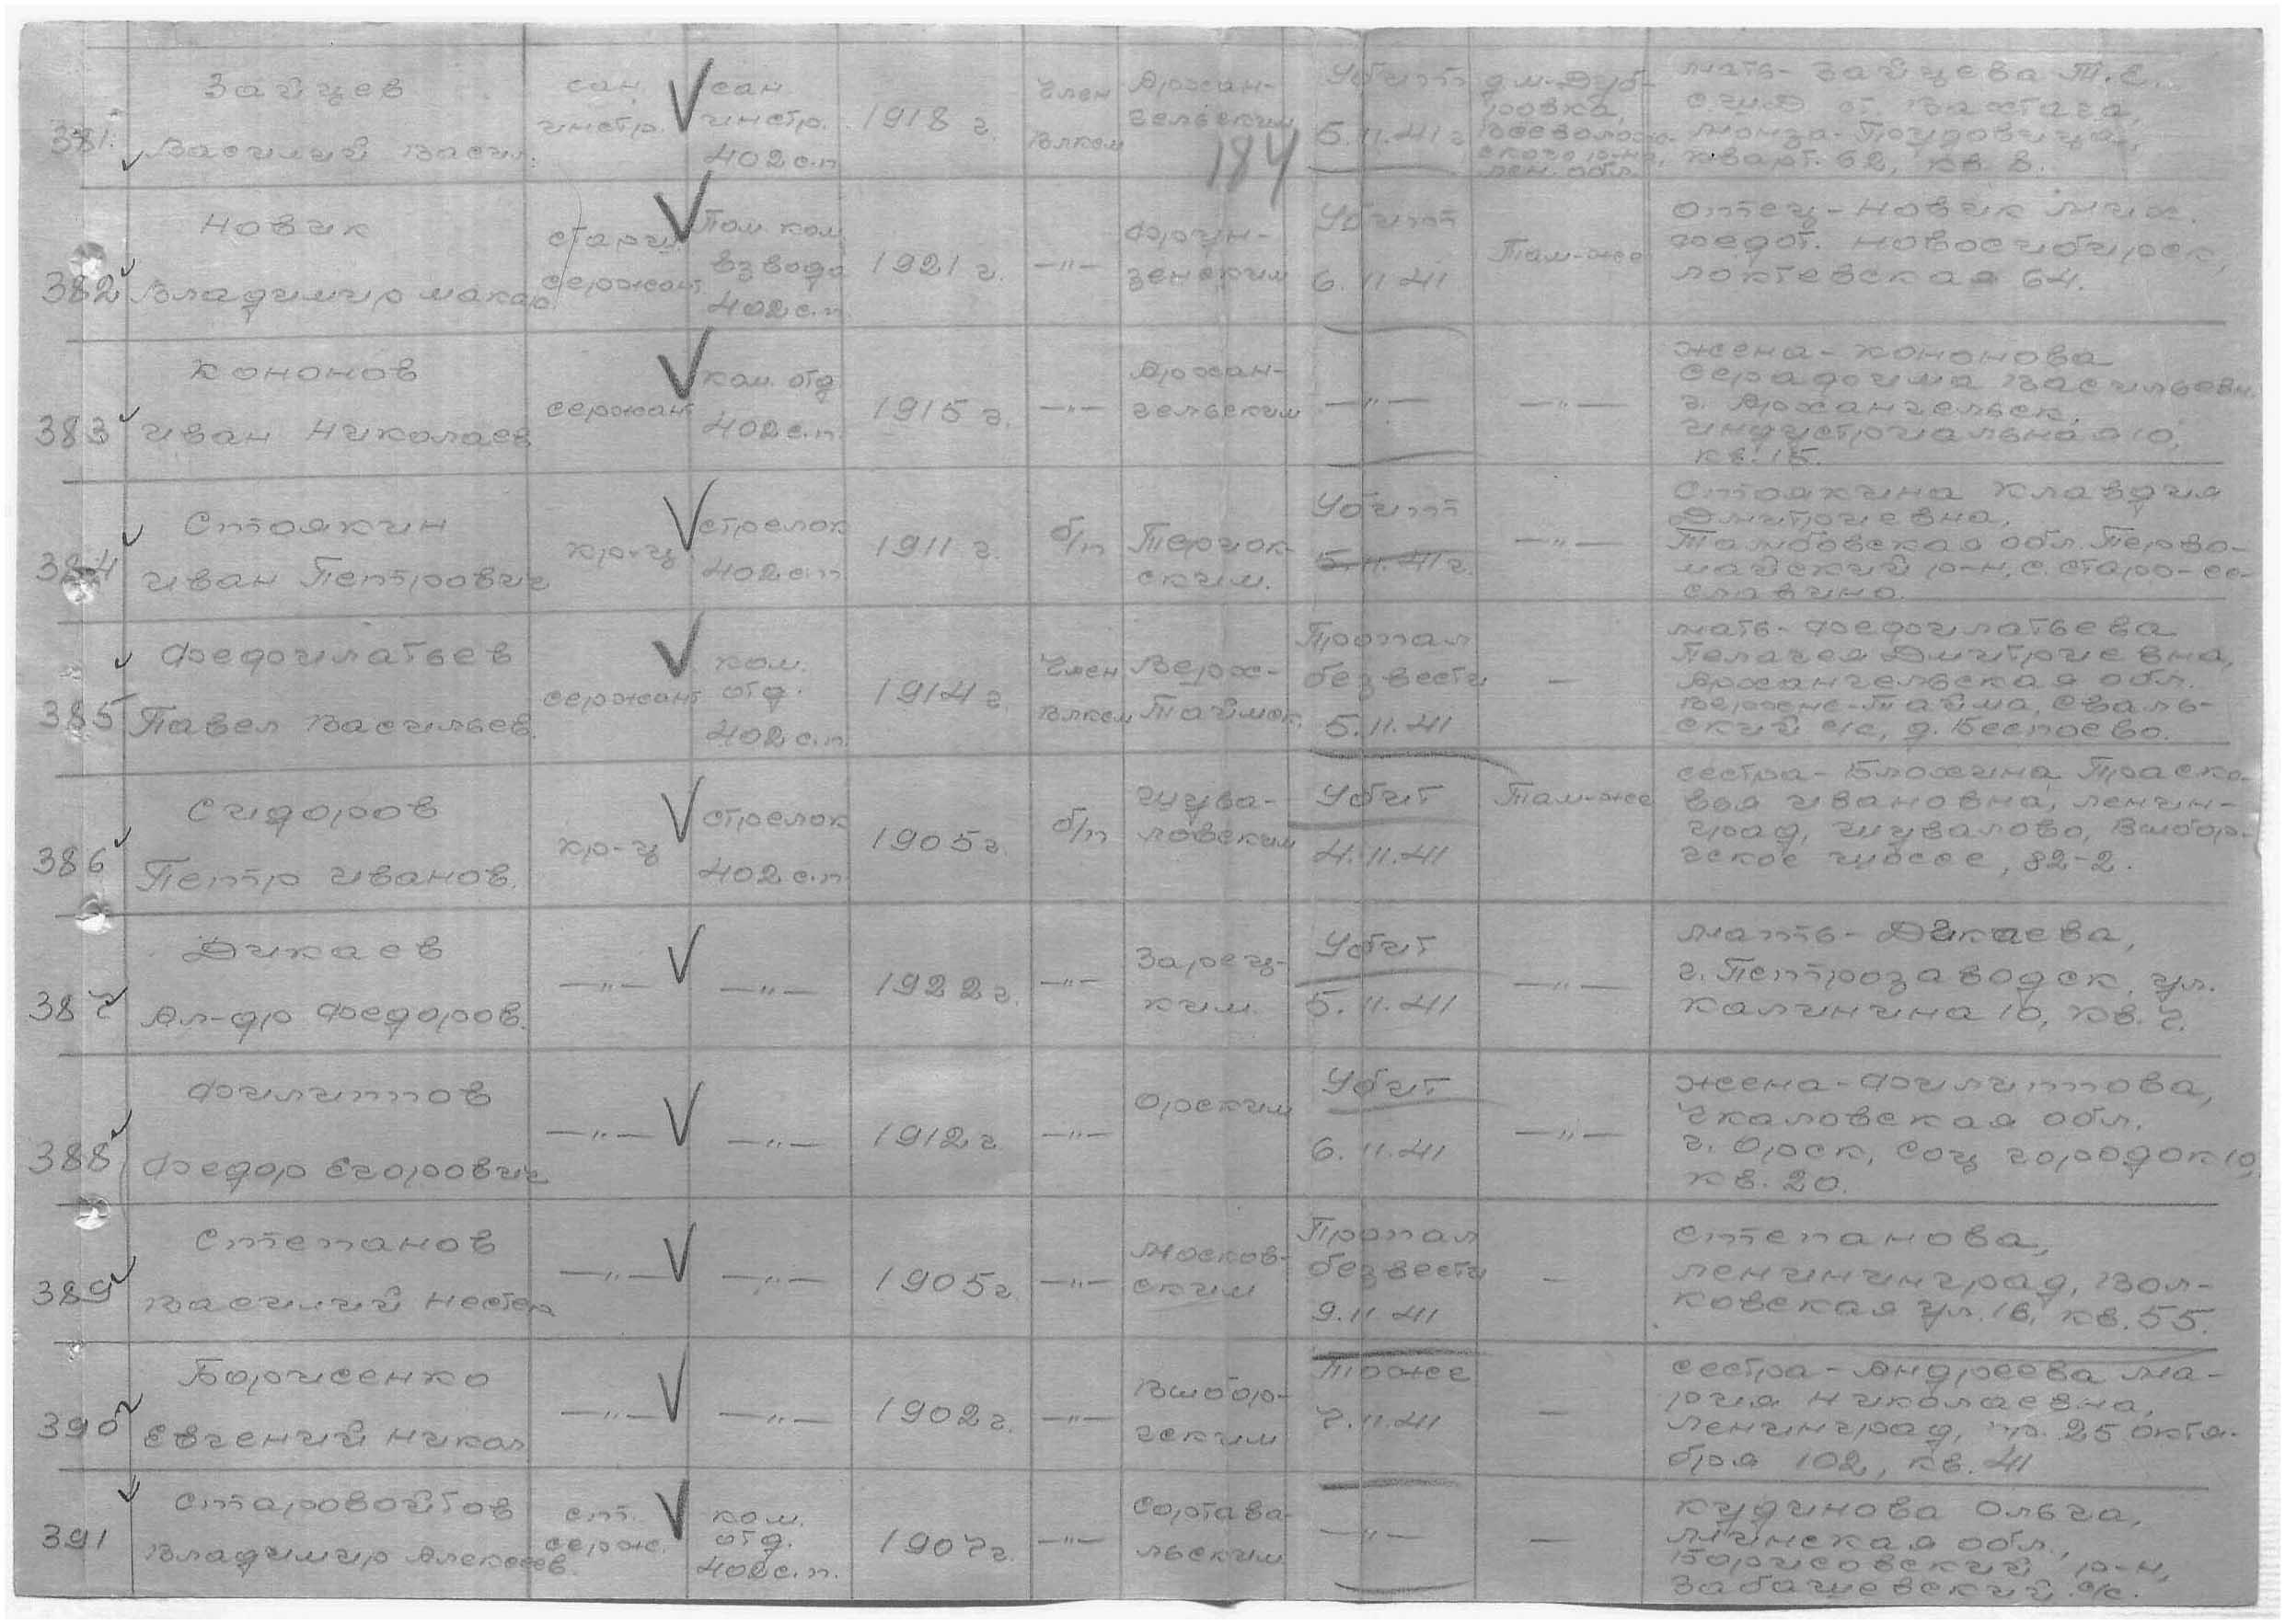 381. Зайцев
Василий Васил.
сан.
инстр.
сан.
инстр.
402 с.п.
1918 г.
Член
ВЛКСМ
Архан-
гельским
184
Убит
5.11.41 г.
д. М-Дуб-
ровка,
Всеволож-
ского р-на,
Лен. обл.
Мать- Зайцева
кварт. 62, кв. 8.
382 Новик
Владимир Макар.
старш.
сержант
Пом. ком.
взвода
402 с.п.
1921 г.
—"—
Фрун-
зенским
Убит
6.11.41
Там-же
Отец - Новик Мих.
Федот. Новосибирск,
Локтевская 64.
383 Кононов
Иван Николаев.
сержант
Ком. отд.
402 с.п.
1915 г.
—"—
Архан-
гельским
—"—
—"—
Жена - Кононова
Серафима Васильевн.
г. Архангельск,
Индустриальная 10,
кв. 15.
384 Стоякин
Иван Петрович
кр-ц
стрелок
402 с.п.
1911 г.
б/п
Териок-
ским.
Убит
5.11.41 г.
—"—
Стоякина Клавдия
Дмитриевна,
Тамбовская обл. Перво-
майский р-н, с. Старо-се-
славино.
385 Федофилатьев
Павел Васильев.
сержант
ком.
отд.
402 с.п.
1914 г.
Член
ВЛКСМ
Верх-
Таймск.
Пропал
без вести
5.11.41
—
Мать- Федофилатьева
Пелагея Дмитриевна,
Архангельская обл.
с/с, д.
386 Сидоров
Петр Иванов.
кр-ц
стрелок
402 с.п.
1905 г.
б/п
Шува-
ловским
Убит
4.11.41
Там-же
сестра - Блохина Праско-
вья Ивановна, Ленин-
град, Шувалово, Выбор-
гское шоссе, 82-2.
387 Дикаев
Ал-др Федоров.
—"—
—"—
1922 г.
—"—
Зарец-
ким.
Убит
5.11.41
—"—
Мать- Дикаева,
г. Петрозаводск, ул.
Калинина 10, кв. 7.
388 Филиппов
Федор Егорович
—"—
—"—
1912 г.
—"—
Орским
Убит
6.11.41
—"—
Жена - Филиппова,
Чкаловская обл.
г. Орск, Соц городок 10,
кв. 20.
389 Степанов
Василий Нестер.
—"—
—"—
1905 г.
—"—
Москов-
ским
Пропал
без вести
9.11.41
—
Степанова,
Ленининград, Вол-
ковская ул. 16, кв. 55.
390 Борисенко
Евгений Никол.
—"—
—"—
1902 г.
—"—
Выбор-
гским
Тоже
7.11.41
—
сестра - Андреева Ма-
рия Николаевна,
Ленинград, пр. 25 октя-
бря 102, кв. 41
391 Старовойтов
Владимир Алексеев.
ст.
серж.
ком.
отд.
402 с.п.
1907 г.
—"—
Сортава-
льским
—"—
—
Кудинова Ольга,
Минская обл.,
Борисовский р-н,
Забашевский с/с.